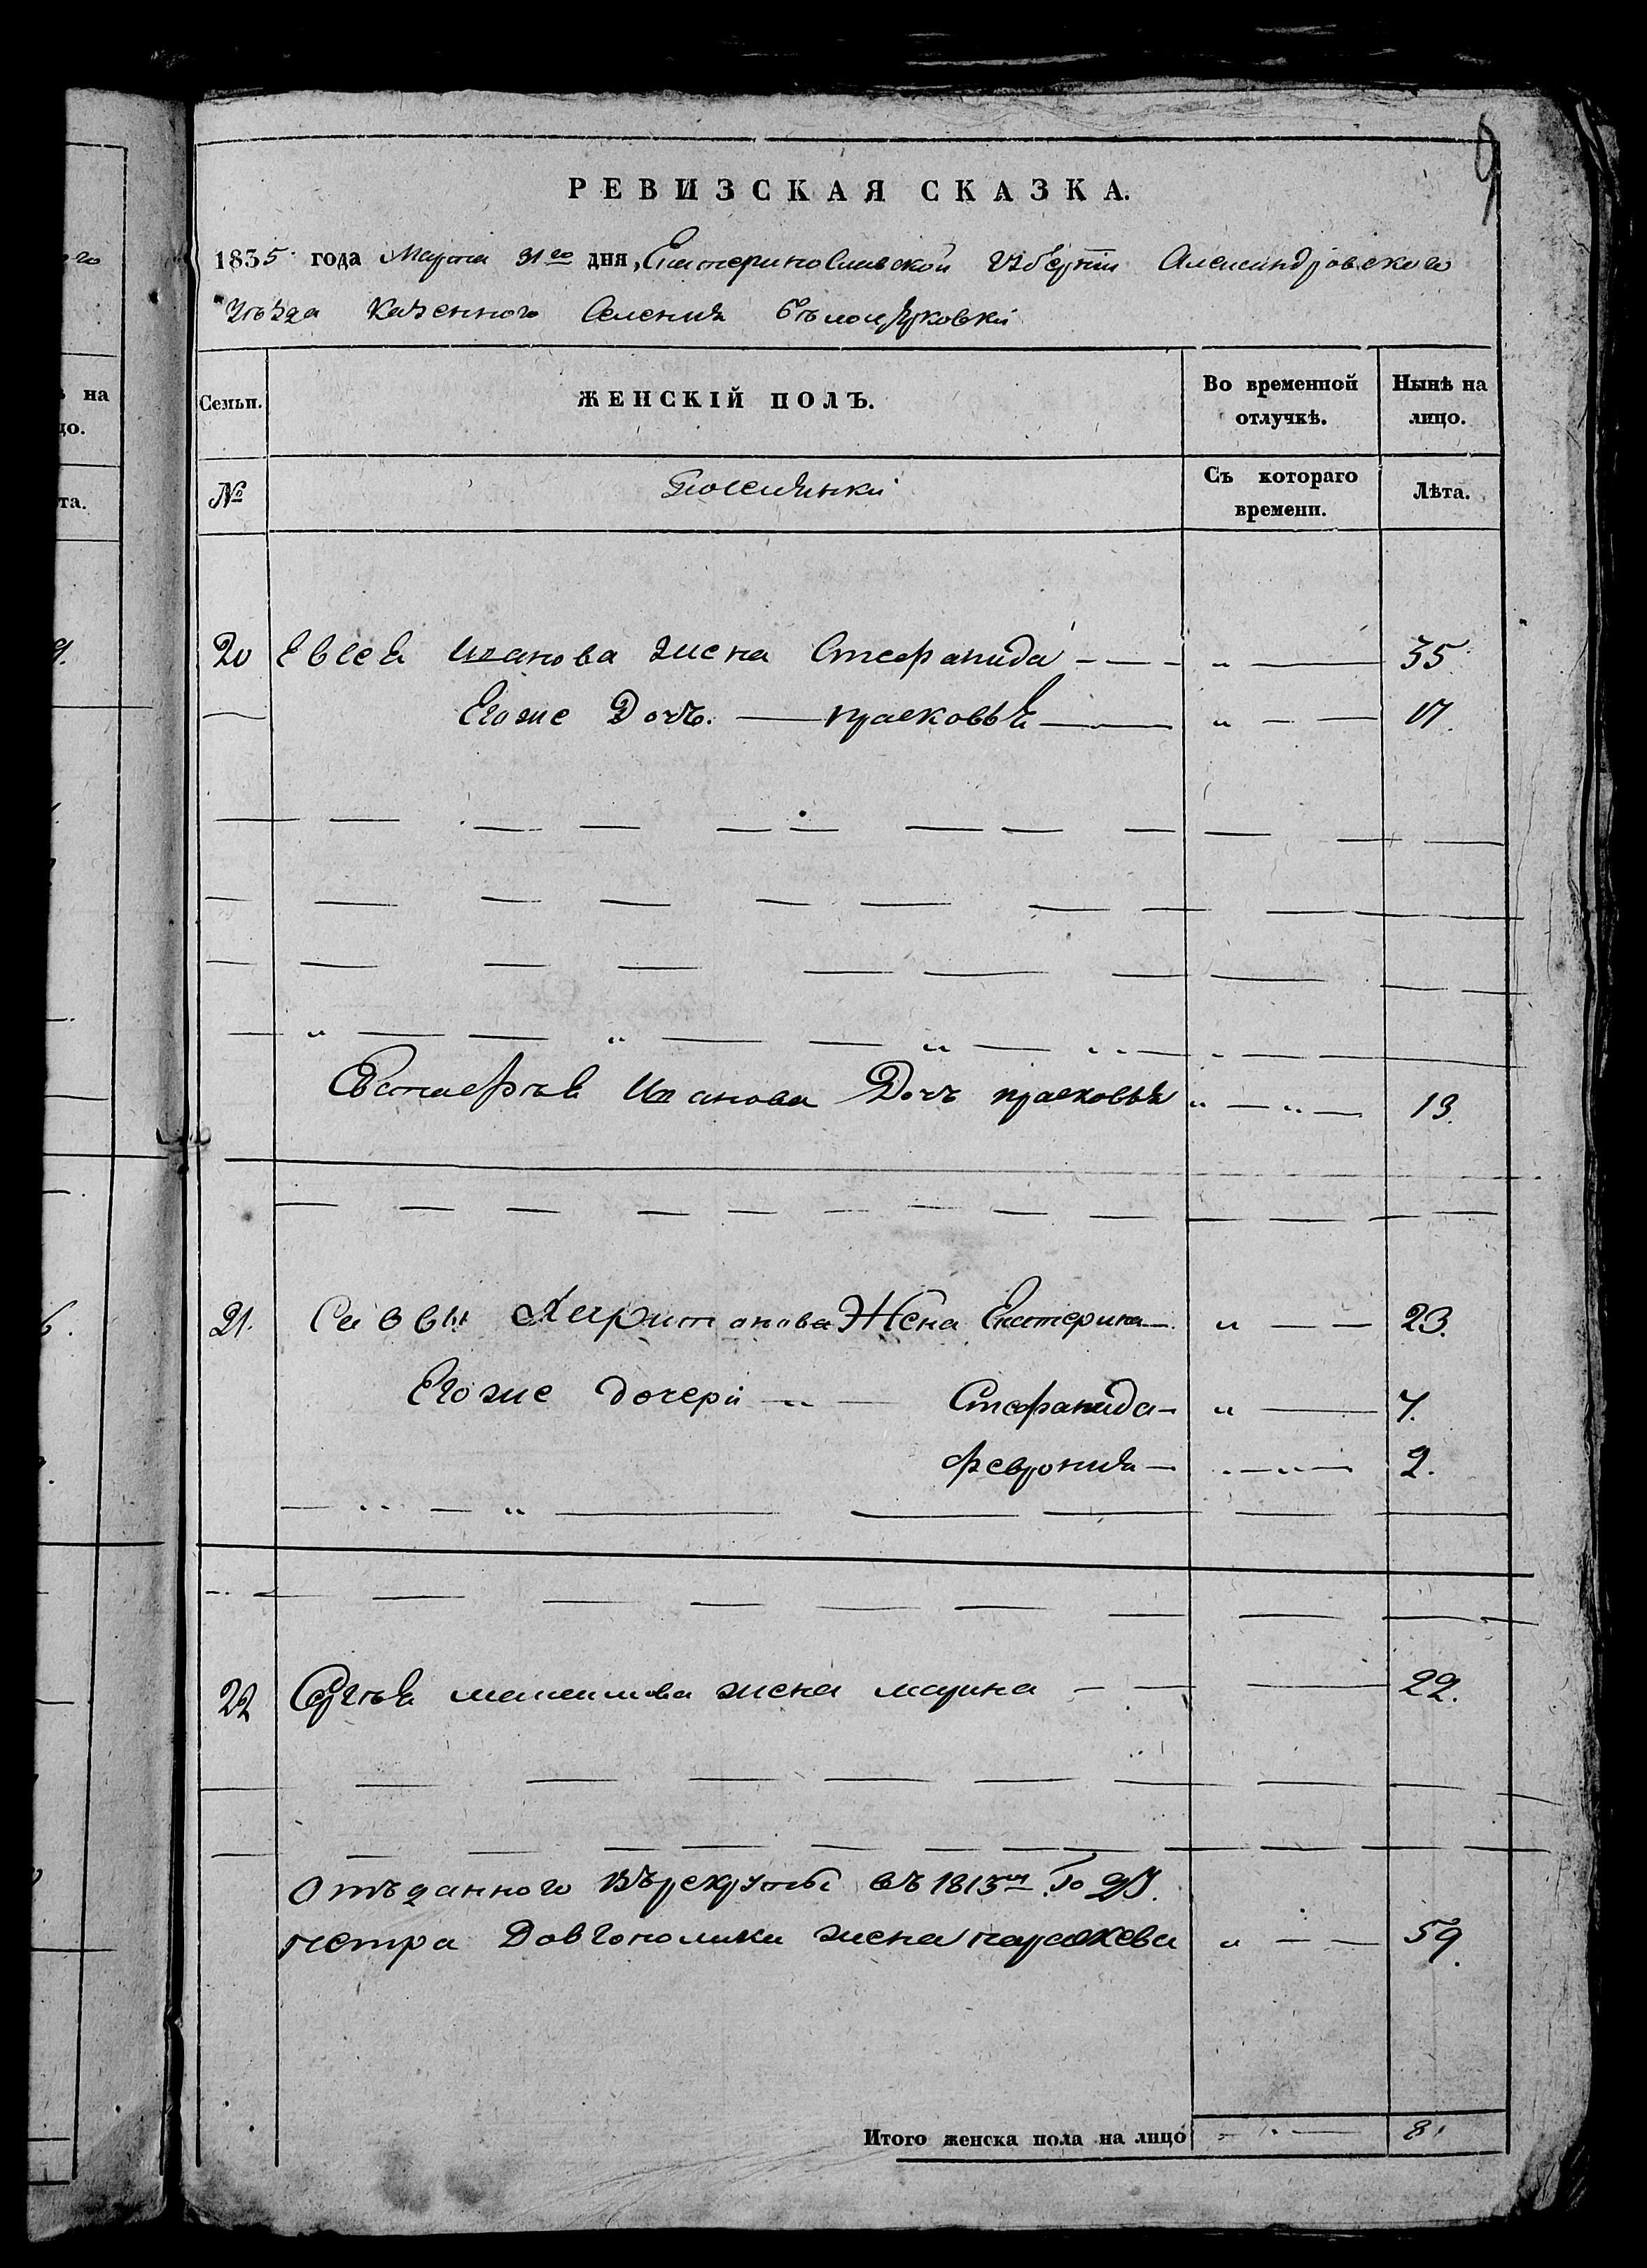 9
РЕВИЗСКАЯ СКАЗКА.
1835 года Марта 31го дня, Екатеринославской Губерніи Александровскаго
Уѣзда Казенного Селенія Бѣлоцерковки
Семьи. ЖЕНСКІЙ ПОЛЪ. Во временной отлучкѣ. Нынѣ на лицо.
№ Поселянки Съ котораго времени. Лѣта.
20 Евсея Иванова жена Стефанида " 35
Егоже Дочь. прасковья " 17.
Евстафѣя Иванова Дочь прасковья " " 13.
21. Саввы Харитонова Жена Екатерина " 23.
Егоже дочери " Стефанида " 4.
феврония " 2.
22 Сергѣя жена марина 22.
Отъданного Върекруты въ 1813м. Году.
петра Довгополика жена параскева " 59.
Итого женска пола на лицо 8.
на
го.
та.